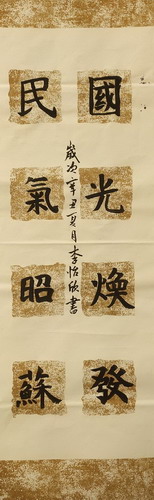 國光煥發
民氣昭蘇
歲次辛丑夏月李怡欣書